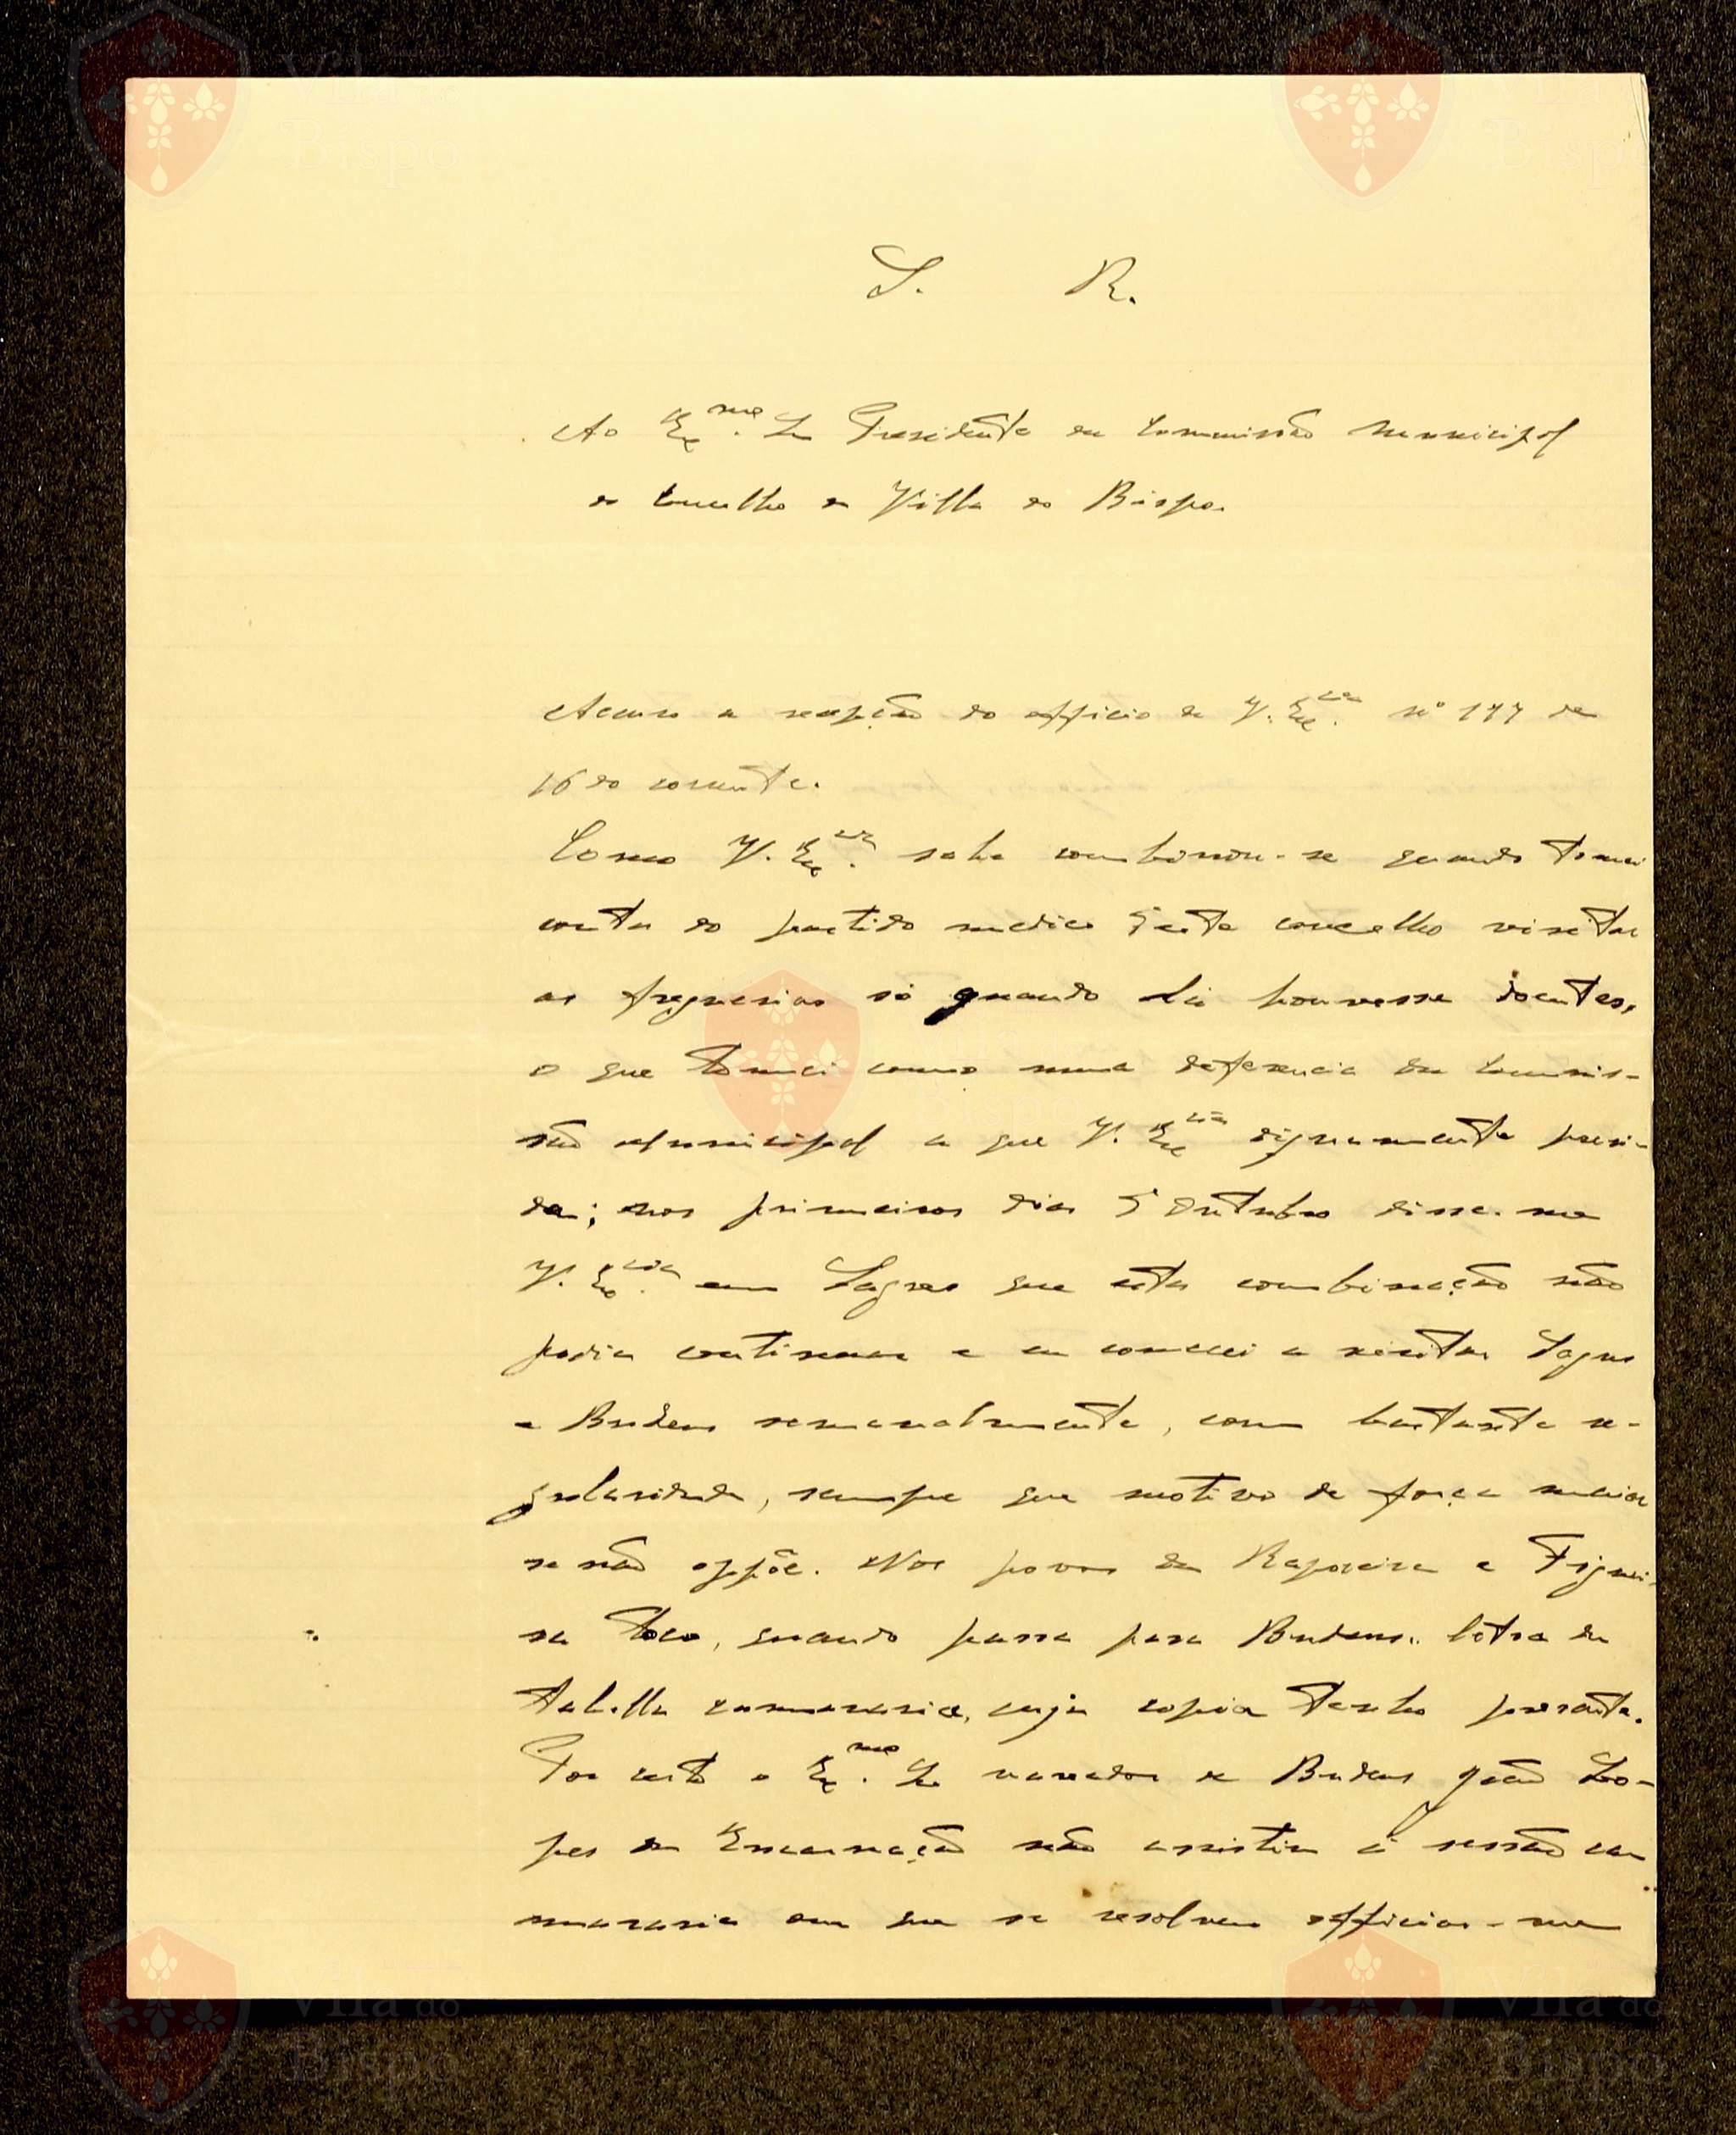 S. R.
Ao Ex.mo Sr Presidente da Commissão Municipal
do Concelho de Villa do Bispo.
Accuso a recepção do officio de V. Ex.cia nº 177 de
16 do corrente.
Como V. Ex.cia sabe combinou-se quando tomei
conta do partido medico d'este concelho visitar
as freguesias só quando lá houvesse doentes,
o que tomei como uma deferencia da Commis-
são Municipal a que V. Ex.cia dignamente presi-
de; nos primeiros dias d'Outubro disse-me
V. Ex.cia em Sagres que esta combinação não
podia continuar e eu comecei a visitar Sagres
e Budens semanalmente, com bastante re-
gularidade, sempre que motivo de força maior
se não oppõe. Nos povos da Raposeira e Figuei-
ra toco, quando passo para Budens. Letra da
tabella camararia, cuja copia tenho presente.
Por certo o Ex.mo Sr vereador de Budens João Lo-
pes da Encarnação não assistiu á sessão ca-
mararia em que se resolveu officiar-me
Vila do
Bispo